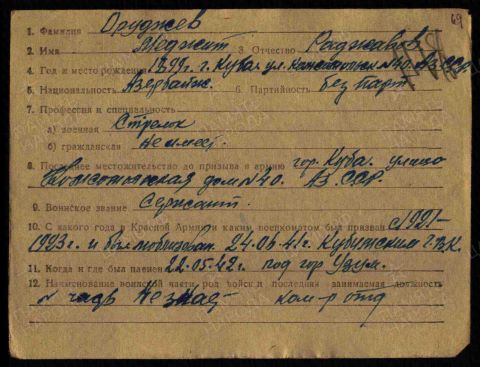 69
1. Фамилия Оруджев
2. Имя Меджит 3. Отчество Раджабов
4. Год и место рождения 1899 г. г. Куба ул. №40. Аз.ССР.
5. Национальность Азербайж. 6. Партийность без парт
7. Профессия и специальность
а) военная Стрелок
б) гражданская Не имеет.
8. Последнее местожительство до призыва в армию гор. Куба. улица
дом №40. Аз. ССР.
9. Воинское звание Сержант.
10. С какого года в Красной Армии и каким военкоматом был призван с 1921-
1923 г. и был мобилизован. 24.06.41 г. Кубинским Г.В.К.
11. Когда и где был пленен 22.05.42 г. под гор
12. Наименование воинской части, род войск и последняя занимаемая должность
№ часть не знает ком-р отд